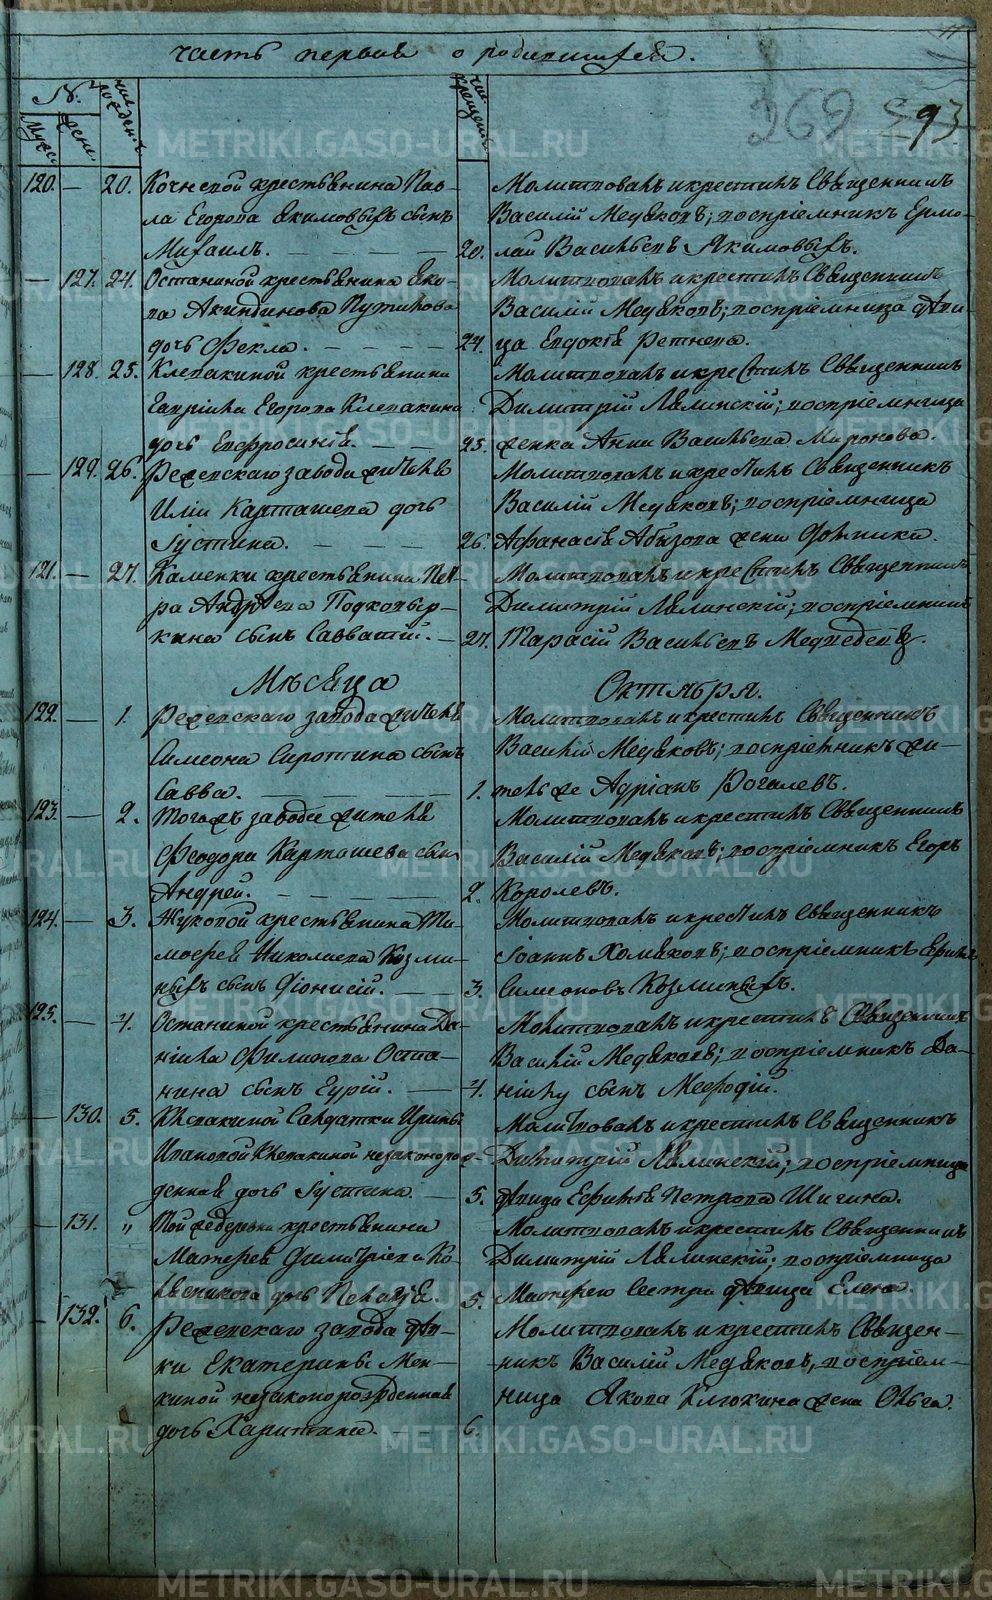 часть первая о родившихся.
№.
Муж.
Жен.
чис. рожден.
чис. крещен.
269
93
120. — 20. Кочневой крестьянина Пав-
ла Егорова Якимовыхъ сынъ
Михаилъ. 20.
Молитвовалъ и крестилъ Священникъ
Василій Медяковъ; воспріемникъ Ермо-
лай Васильевъ Якимовыхъ.
— 127. 24. Останиной крестьянина Яко-
ва Акиндинова Пузикова
дочь Фекла. 24.
Молитвовалъ и крестилъ Священникъ
Василій Медяковъ; воспріемница дѣви-
ца Евдокія Ретнева.
— 128. 25. Клевакиной крестьянина
Гавріила Егорова Клевакина
дочь Евфросинія. 25.
Молитвовалъ и крестилъ Священникъ
Димитрій Лялинскій; воспріемница
женка Анна Васильева Миронова.
— 129. 26. Режевскаго завода жителя
Иліи Карташева дочь
Іустина. 26.
Молитвовалъ и крестилъ Священникъ
Василій Медяковъ; воспріемница
Афанасія Абызова жена Фотинія.
121. — 27. Каменки крестьянина Пет-
ра Андреева Подковыр-
кина сынъ Савватій. 27.
Молитвовалъ и крестилъ Священникъ
Димитрій Лялинскій; воспріемникъ
Тарасій Васильевъ Медведевъ.
Мѣсяца Октября.
122. — 1. Режевскаго завода жителя
Симеона Сиротина сынъ
Савва. 1.
Молитвовалъ и крестилъ Священникъ
Василій Медяковъ; воспріемникъ жи-
тель же Адріанъ Рогалевъ.
123. — 2. Тогожъ завода жителя
Феодора Карташева сынъ
Андрей. 2.
Молитвовалъ и крестилъ Священникъ
Василій Медяковъ; воспріемникъ Егоръ
Королевъ.
124. — 3. Жуковой крестьянина Ти-
мофея Николаева Козми-
ныхъ сынъ Діонисій. 3.
Молитвовалъ и крестилъ Священникъ
Іоаннъ Хомяковъ; воспріемникъ
Симеоновъ Козминыхъ.
125. — 4. Останиной крестьянина Да-
ніила Филипова Оста-
нина сынъ Гурій. 4.
Молитвовалъ и крестилъ Священникъ
Василій Медяковъ; воспріемникъ Да-
ніилу сынъ Мефодій.
— 130. 5. Клевакиной Салдатки Ирины
Ивановой Клевакиной незаконорож-
денная дочь Іустина. 5.
Молитвовалъ и крестилъ Священникъ
Димитрій Лялинскій; воспріемница
дѣвица Петрова Шигина.
— 131. „ крестьянина
Матфея Димитріева Ко-
дочь Пелагія. 5.
Молитвовалъ и крестилъ Священникъ
Димитрій Лялинскій; воспріемница
Матфею сестра дѣвица Елена.
— 132. 6. Режевскаго завода дѣв-
ки Екатерины Мок-
киной незаконорожденная
дочь Харитина. 6.
Молитвовалъ и крестилъ Священ-
никъ Василій Медяковъ, воспріем-
ница Якова Клюкина жена Ольга.
METRIKI.GASO-URAL.RU